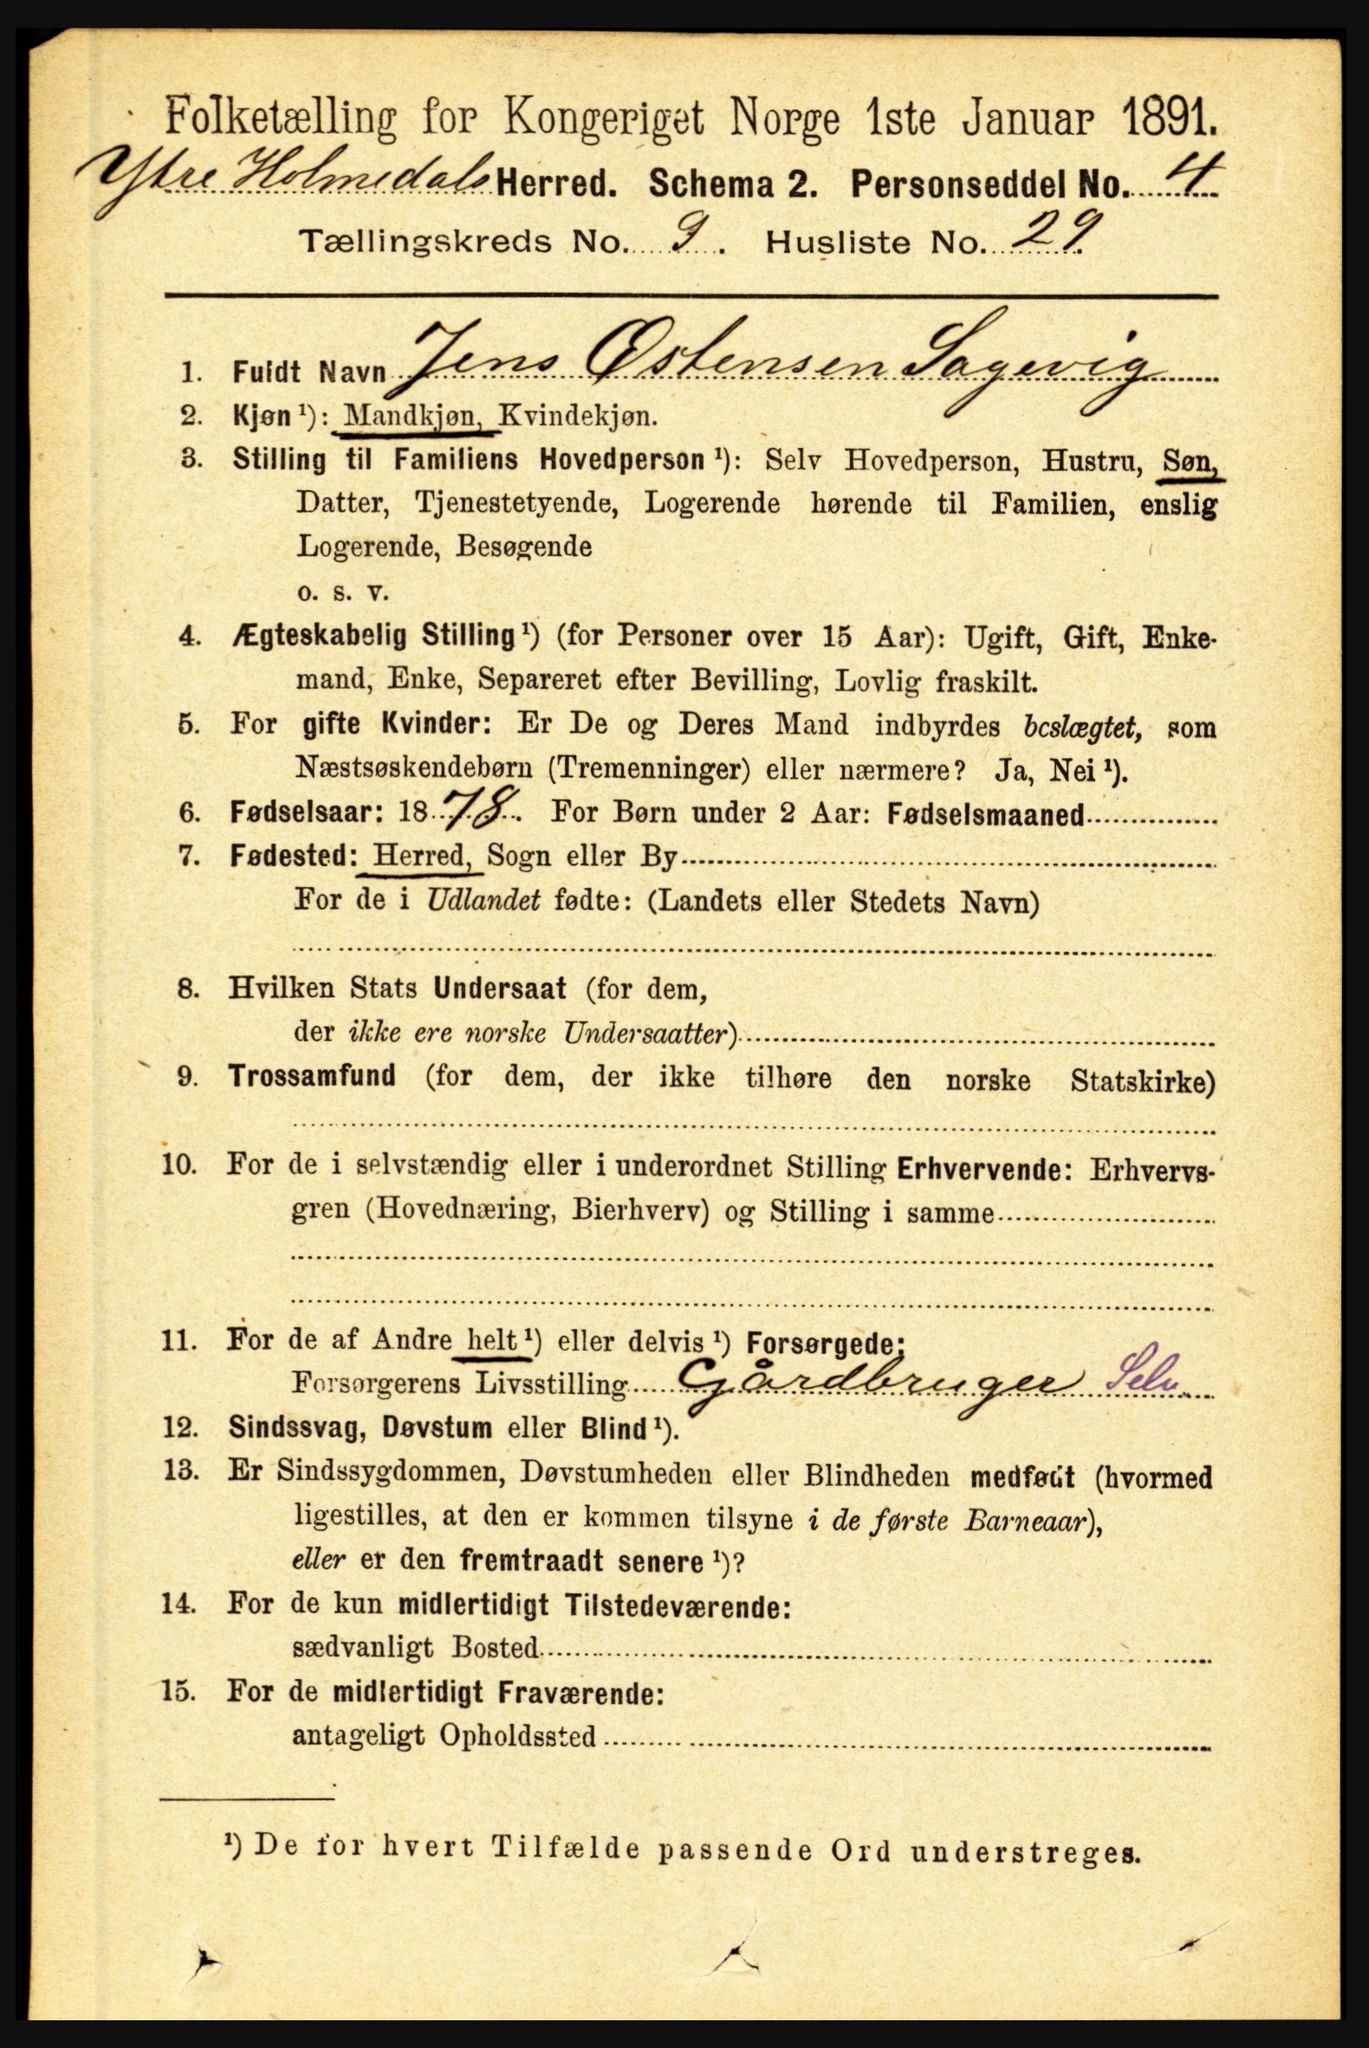 Folketælling for Kongeriget Norge 1ste Januar 1891.
Ytre Holmedals Herred. Schema 2. Personseddel No. 4
Tællingskreds No. 9. Husliste No. 29.
1. Fuldt Navn Jens Østensen Sagevig
2. Kjøn ¹): Mandkjøn, Kvindekjøn.
3. Stilling til Familiens Hovedperson ¹): Selv Hovedperson, Hustru, Søn,
Datter, Tjenestetyende, Logerende hørende til Familien, enslig
Logerende, Besøgende
o. s. v.
4. Ægteskabelig Stilling ¹) (for Personer over 15 Aar): Ugift, Gift, Enke-
mand, Enke, Separeret efter Bevilling, Lovlig fraskilt.
5. For gifte Kvinder: Er De og Deres Mand indbyrdes beslægtet, som
Næstsøskendebørn (Tremenninger) eller nærmere? Ja, Nei ¹).
6. Fødselsaar: 1878. For Børn under 2 Aar: Fødselsmaaned
7. Fødested: Herred, Sogn eller By
For de i Udlandet fødte: (Landets eller Stedets Navn)
8. Hvilken Stats Undersaat (for dem,
der ikke ere norske Undersaatter)
9. Trossamfund (for dem, der ikke tilhøre den norske Statskirke)
10. For de i selvstændig eller i underordnet Stilling Erhvervende: Erhvervs-
gren (Hovednæring, Bierhverv) og Stilling i samme
11. For de af Andre helt ¹) eller delvis ¹) Forsørgede:
Forsørgerens Livsstilling Gårdbruger Selv.
12. Sindssvag, Døvstum eller Blind ¹).
13. Er Sindssygdommen, Døvstumheden eller Blindheden medfødt (hvormed
ligestilles, at den er kommen tilsyne i de første Barneaar),
eller er den fremtraadt senere ¹)?
14. For de kun midlertidigt Tilstedeværende:
sædvanligt Bosted
15. For de midlertidigt Fraværende:
antageligt Opholdssted
¹) De for hvert Tilfælde passende Ord understreges.